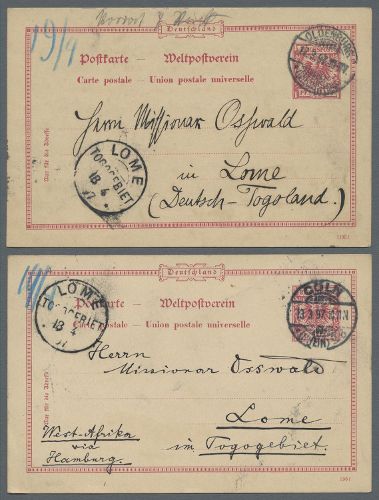 19/4
Deutschland
Postkarte – Weltpostverein
Carte postale – Union postale universelle
Nur für die Adresse
OLDENBURG
Herrn Missionar Osswald
in Lome
(Deutsch-Togoland.)
LOME
TOGOGEBIET
18 4
97
Deutschland
Postkarte – Weltpostverein
Carte postale – Union postale universelle
Nur für die Adresse
CÖLN
(RHEIN)
LOME
TOGOGEBIET
18 4
97
Herrn
Missionar Osswald
Lome
im Togogebiet.
West-Afrika
via
Hamburg.